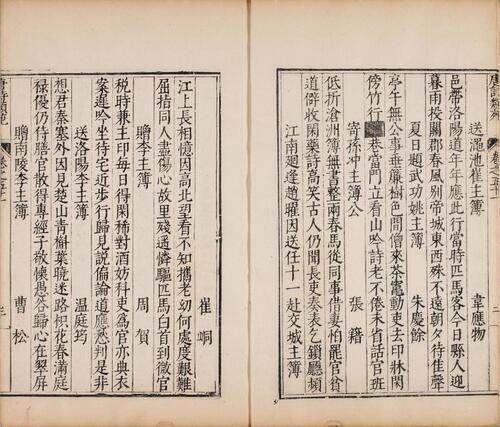 送澠池崔主簿 韋應物
邑帶洛陽道年年應此行當時匹馬客今日縣人迎
暮雨投關郡春風別帝城東西殊不遠朝夕待佳聲
夏日題武功姚主簿 朱慶餘
亭午無公事垂簾樹色間僧來茶竈動吏去印牀閑
傍竹行巷當門立看山吟詩老不倦未省話官班
寄孫冲主簿公 張籍
低折滄洲簿無書整兩春馬從同事借妻怕罷官貧
道僻收閑藥詩高笑古人仍聞長吏奏表乞鎖廳頻
江南廻逢趙曜因送任十一赴交城主簿
崔峒
江上長相憶因高北望看不知攜老幼何處度艱難
屈指同人盡傷心故里殘遥憐驅匹馬白首到微官
贈李主簿 周賀
稅時兼主印每日得閑稀對酒妨科吏爲官亦典衣
案遲吟坐待宅近步行歸見說偏論道應愁判是非
送洛陽李主簿 温庭筠
想君秦塞外因見楚山青槲葉曉迷路枳花春滿庭
祿優仍侍膳官散得專經子敬懷愚谷歸心在翠屏
贈南陵李主簿 曹松